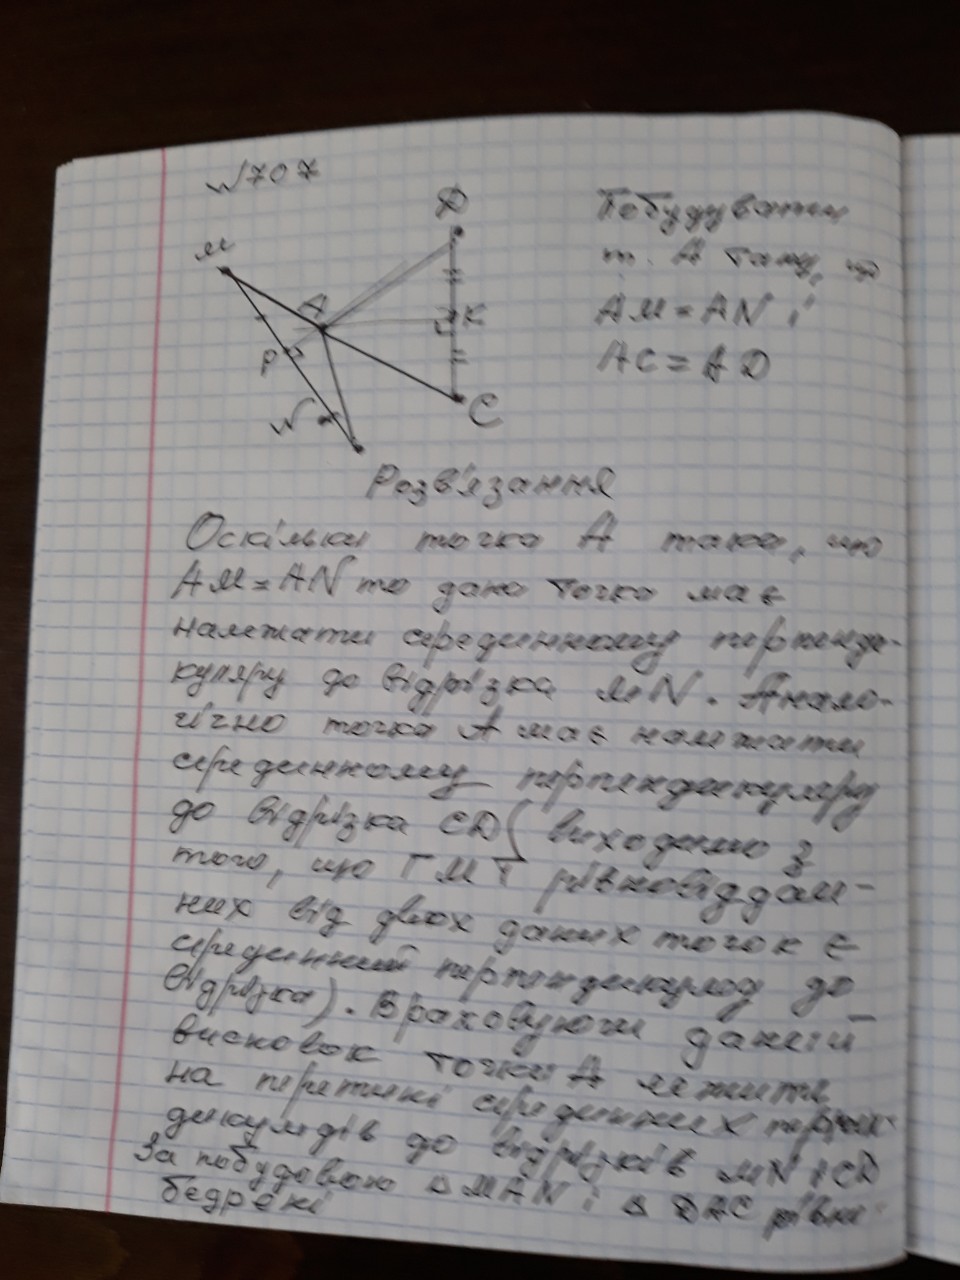 №707
Побудувати
т. А таку, що
AM = AN і
AC = AD
M
A
D
K
P
N
C
Розв'язання
Оскільки точка А така, що
AM = AN то дана точка має
належати серединному перпенди-
куляру до відрізка MN. Анало-
гічно точка А має належати
серединному перпендикуляру
до відрізка CD (виходячи з
того, що ГМТ рівновіддале-
них від двох даних точок є
серединний перпендикуляр до
відрізка). Враховуючи даний
висновок точка А лежить
на перетині серединних перпен-
дикулярів до відрізків MN і CD
За побудовою △ MAN і △ DAC рівно
бедрені